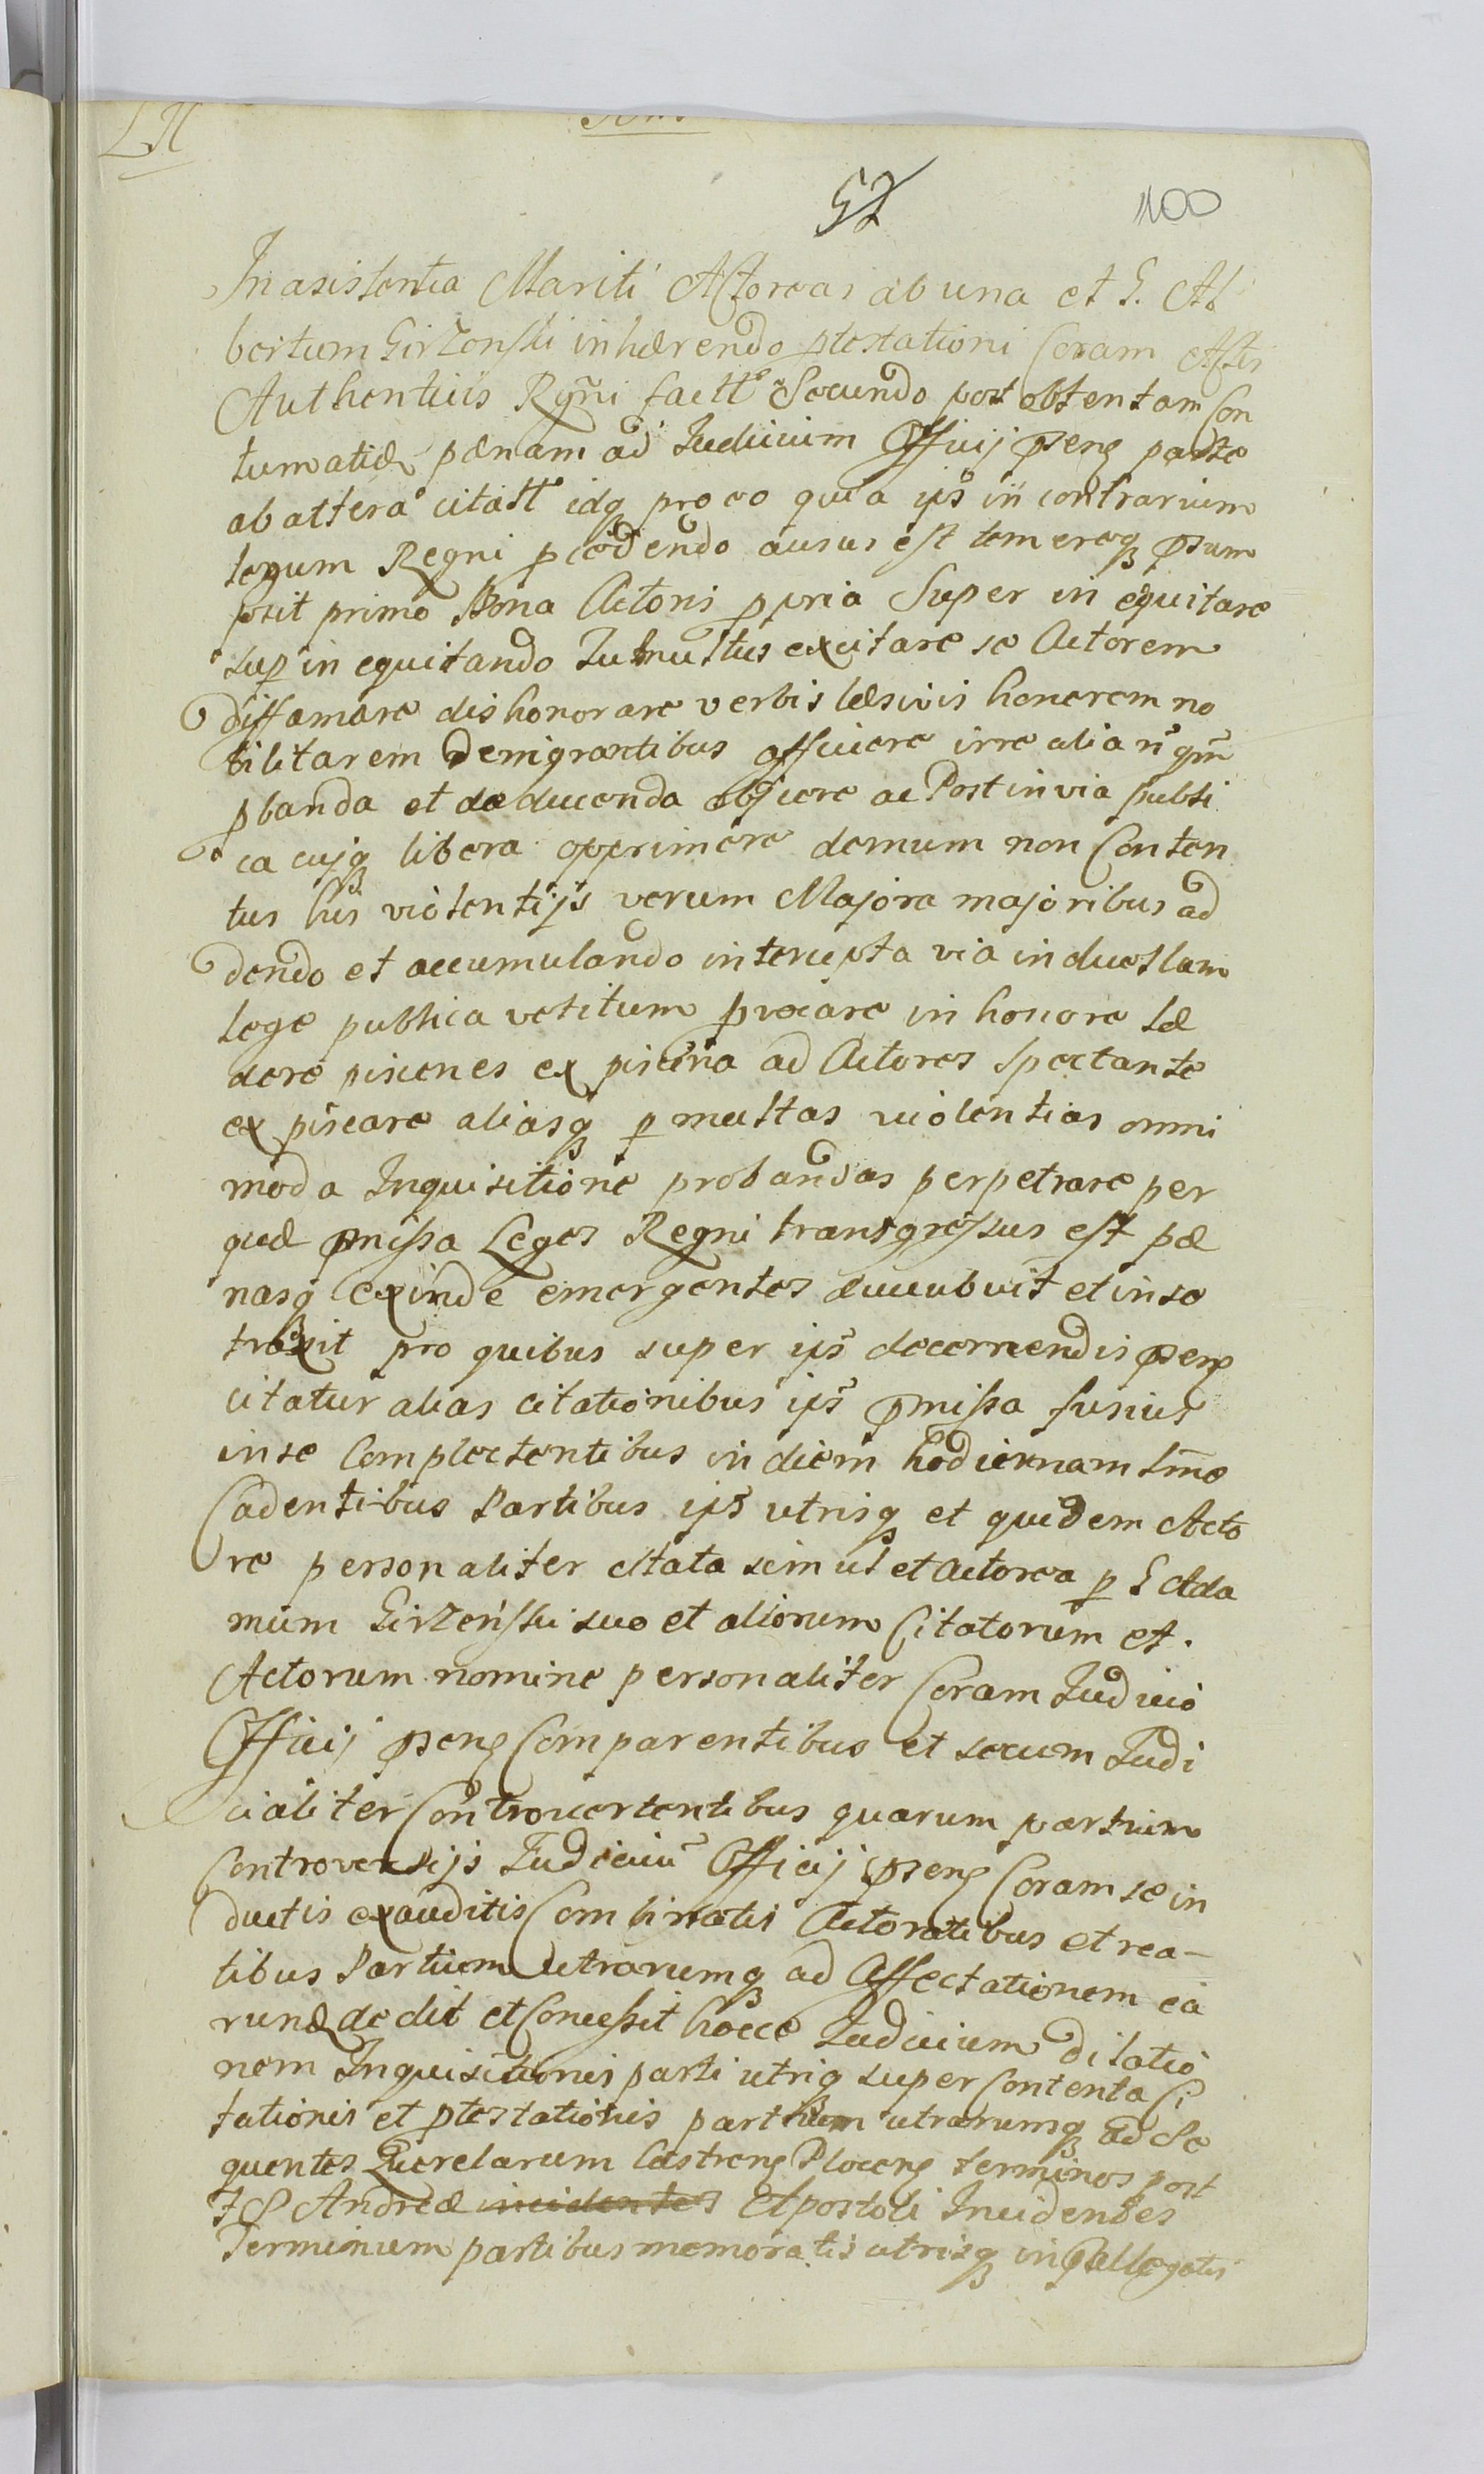 LII
52
100
In asistentia Mariti Actoreas ab una et G. Al
bertum Girzenski inhærendo ptestationi Coram Actis
Authenticis Regni factt Secundo post obtentam Con
tumatiæ pænam ad Judicium Officij psens parte
ab altera citatt idq pro eo quia ips in contrarium
legum Regni pcedendo ausus est temereq psum
psit primo Bona Actoris ppria Super in equitare
sup in equitando Tumultus excitare se Actorem
diffamare dishonorare verbis læsivis honorem no
bilitarem denigrantibus afficere irre alia ni qm
pbanda et deducenda obijcere ac Post in via publi
ca cujq libera opprimere demum non Conten
tus his violentijs verum Majora majoribus ad
dendo et accumulando intercepta via in duellum
lege publica vetitum pvocare in honore læ
dere piscenes ex piscina ad Actores Spectante
expiscare aliasq p multas violentias omni
moda Inquisitione probandas perpetrare per
quæ pmissa Leges Regni transgressus est pæ
nasq exinde emergentes succubuit et in se
traxit pro quibus super ips decernendis psens
citatur alias citationibus ips pmissa fusius
in se Complectentibus in diem hodiernam tmo
Cadentibus Partibus ips utrisq et quidem Acto
re personaliter citata simul et Actorea p G Ada
mum Girzenski suo et aliorum Citatorum et
Actorum nomine personaliter Coram Judicio
Officij psens Comparentibus et secum Judi
cialiter Controvertentibus quarum partium
Controversijs Judicium Officij psens Coram se in
ductis exauditis Combinatis Actoratibus et rea-
tibus Partium utrarumq ad Affectationem ea
rund dedit et Concessit hocce Judicium dilatio
nem Inquisitionis parti utriq super Contenta Ci
tationis et ptestationis partium utrarumq ad Se
quentes Querelarum Castrens Plocens terminos post
F S Andreæ incidentes Apostoli Incidentes
Terminum partibus memoratis utrisq in pallegatis